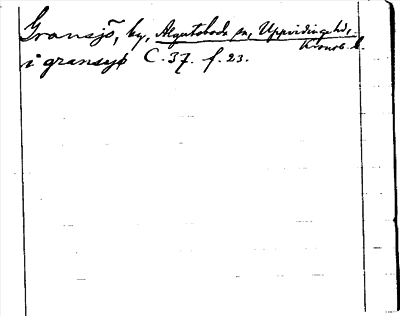 Gransjö, by, Algutsboda sn, Uppvidinge hd,
Kronob. l.
i gransyø C. 37. f. 23.